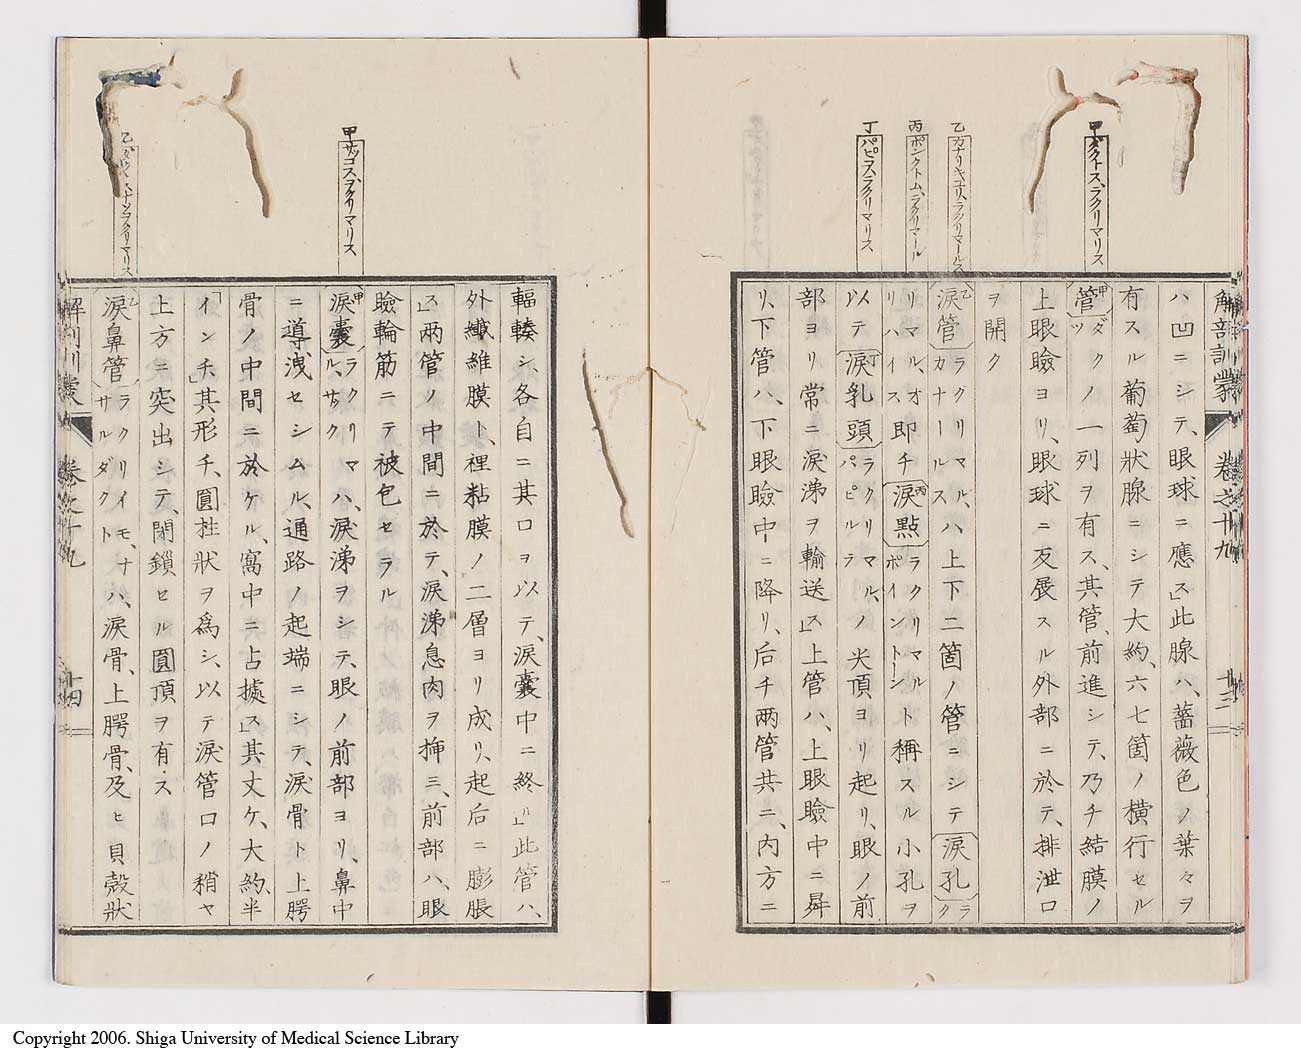 甲ダクトス、ラクリマリス
乙カナリキユリ、ラクリマールス
丙ポンクトム、ラクリマール
丁パピラ、ラクリマリス
解剖訓蒙 卷之十九 十三
ハ凹ニシテ、眼球ニ應ス」此腺ハ、薔薇色ノ葉々ヲ
有スル葡萄狀腺ニシテ大約、六七箇ノ橫行セル
管甲ダクノツ一列ヲ有ス、其管、前進シテ、乃チ結膜ノ
上眼瞼ヨリ、眼球ニ反展スル外部ニ於テ、排泄口
ヲ開ク
淚管乙ラグリマル、カナールスハ、上下二箇ノ管ニシテ淚孔ラク
リマル、オリハイス即チ淚點丙ラクリマルポイントーント稱スル小孔ヲ
以テ淚乳頭丁ラクリマル、パピルラノ尖頂ヨリ起リ、眼ノ前
部ヨリ常ニ淚涕ヲ輸送ス」上管ハ、上眼瞼中ニ舁
リ、下管ハ、下眼瞼中ニ降リ、后チ兩管共ニ、內方ニ
甲サッコス、ラクリマリス
輻輳シ、各自ニ其口ヲ以テ、淚囊中ニ終ル」此管ハ、
外纖維膜ト、裡粘膜ノ二層ヨリ成リ、起后ニ膨脹
ス」兩管ノ中間ニ於テ、淚涕息肉ヲ挿ミ、前部ハ、眼
瞼輪筋ニテ被包セラル
淚囊甲ラクリマル、サックハ、淚涕ヲシテ、眼ノ前部ヨリ、鼻中
ニ導洩セシムル、通路ノ起端ニシテ、淚骨ト上腭
骨ノ中間ニ於ケル、窩中ニ占據ス」其丈ケ、大約、半
「インチ」其形チ、圓柱狀ヲ爲シ、以テ淚管口ノ稍ヤ
上方ニ突出シテ、閉鎖セル圓頂ヲ有ス
淚鼻管乙ラクリイモ、ナサルダクトハ、淚骨、上腭骨、及ヒ貝殼狀
解剖訓蒙 卷之十九 十四